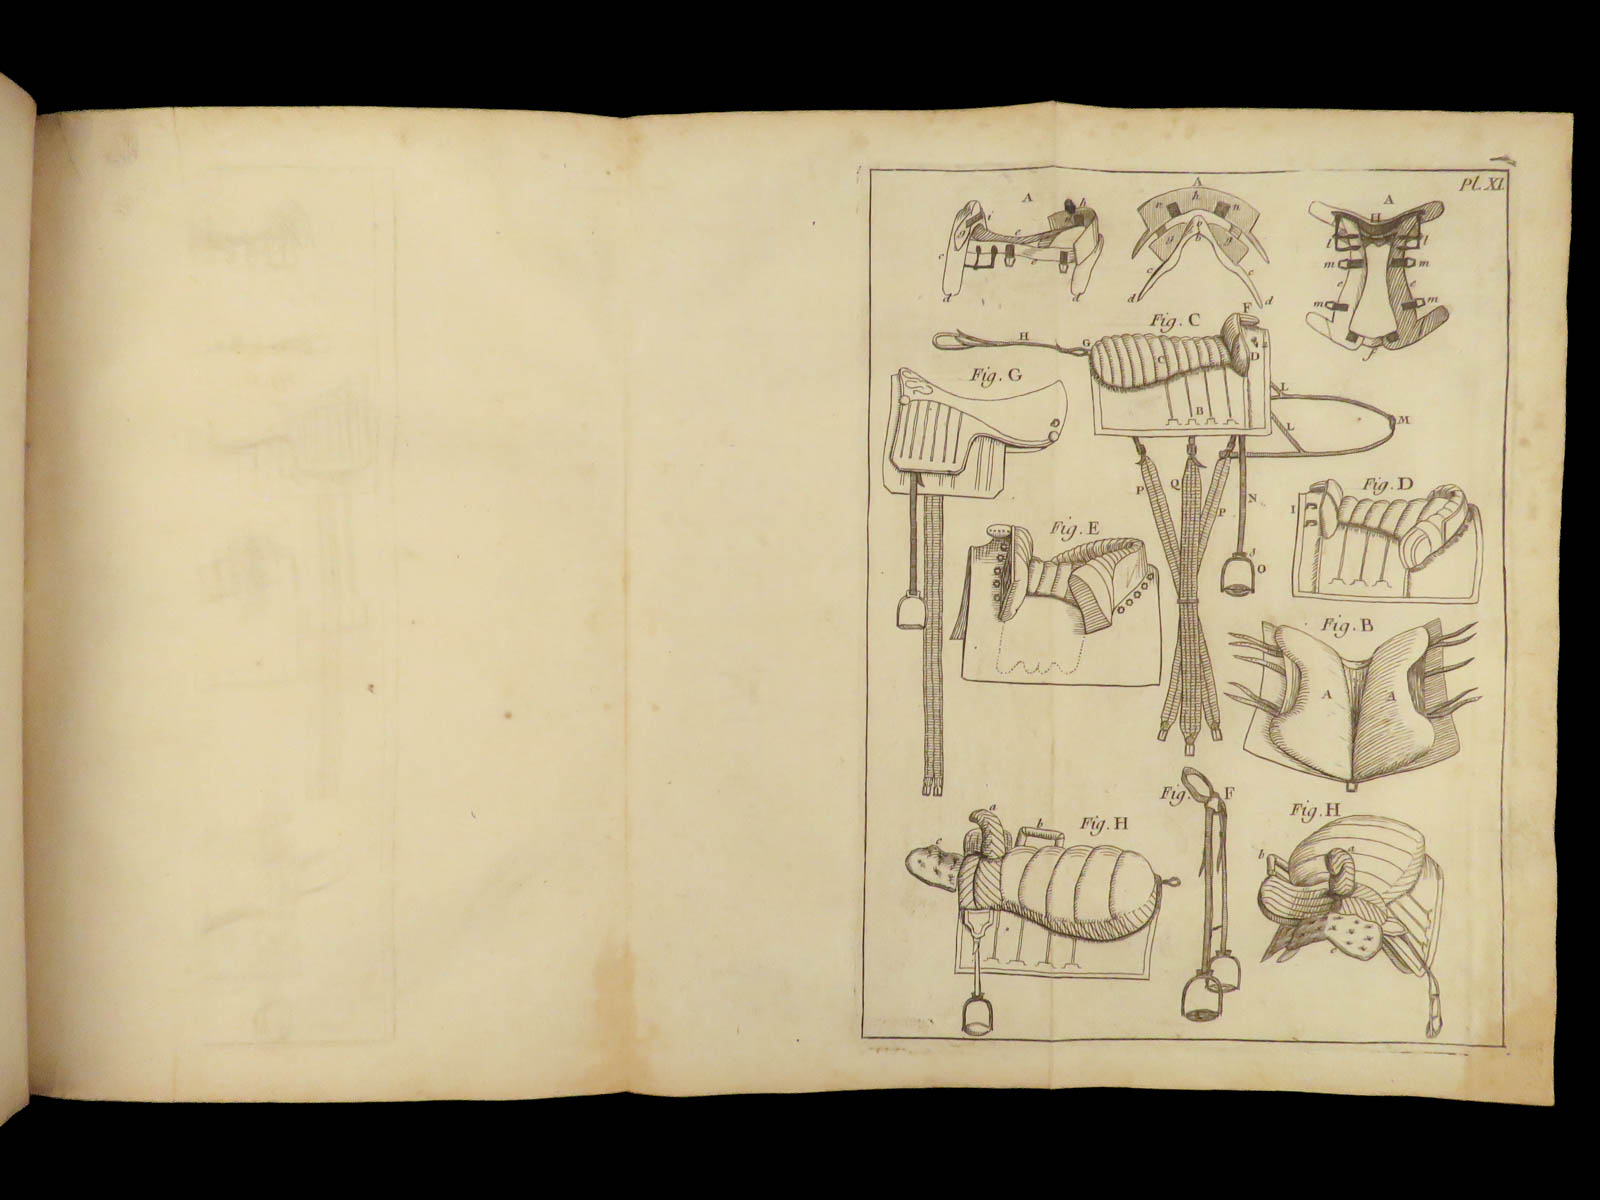 Pl. XI.
A
A
A
i
h
g
n
e
c
e
d
d
n
h
n
g
b
g
c
c
d
d
H
l
l
m
m
e
e
m
m
f
Fig. C
F
H
G
C
D
B
L
L
M
P
Q
P
N
s
O
Fig. G
Fig. D
I
Fig. E
Fig. B
A
A
Fig. F
Fig. H
a
b
c
Fig. H
b
a
c